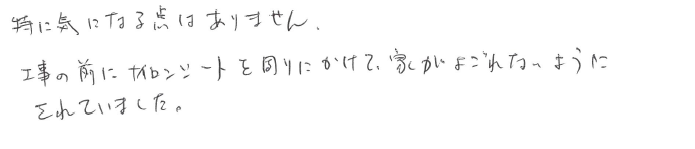 特に気になる点はありません.
工事の前にナイロンシートを周りにかけて、家がよごれないように
されていました。